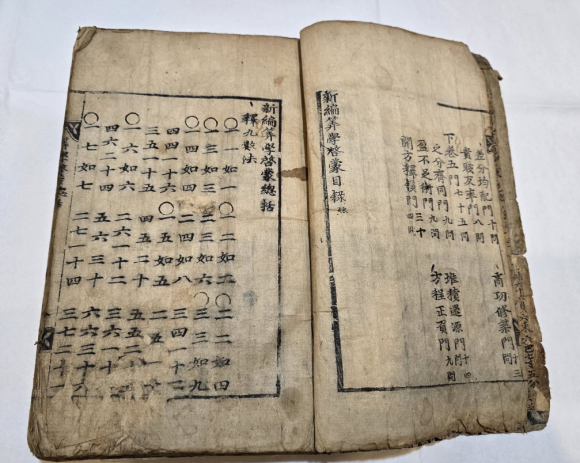 差分均配門十問 商功修築門十三問
貴賤反率門八問
下卷五門七十五問
之分齊同門九問 堆積還源門十四問
盈不足術門九問 方程正負門九問
開方釋鎖門三十四問
新編筭學啓蒙目録終
新編筭學啓蒙總括
釋九數法
○一一如一 ○一二如二 ○二二如四
○一三如三 二三如六 ○三三如九
○一四如四 二四如八 三四一十二
四四一十六 ○一五如五 二五一十
三五一十五 四五二十 五五二
○一六如六 二六一十二 三六一十
四六二十四 五六三十 六六三十
○一七如七 二七一十四 三七二十一